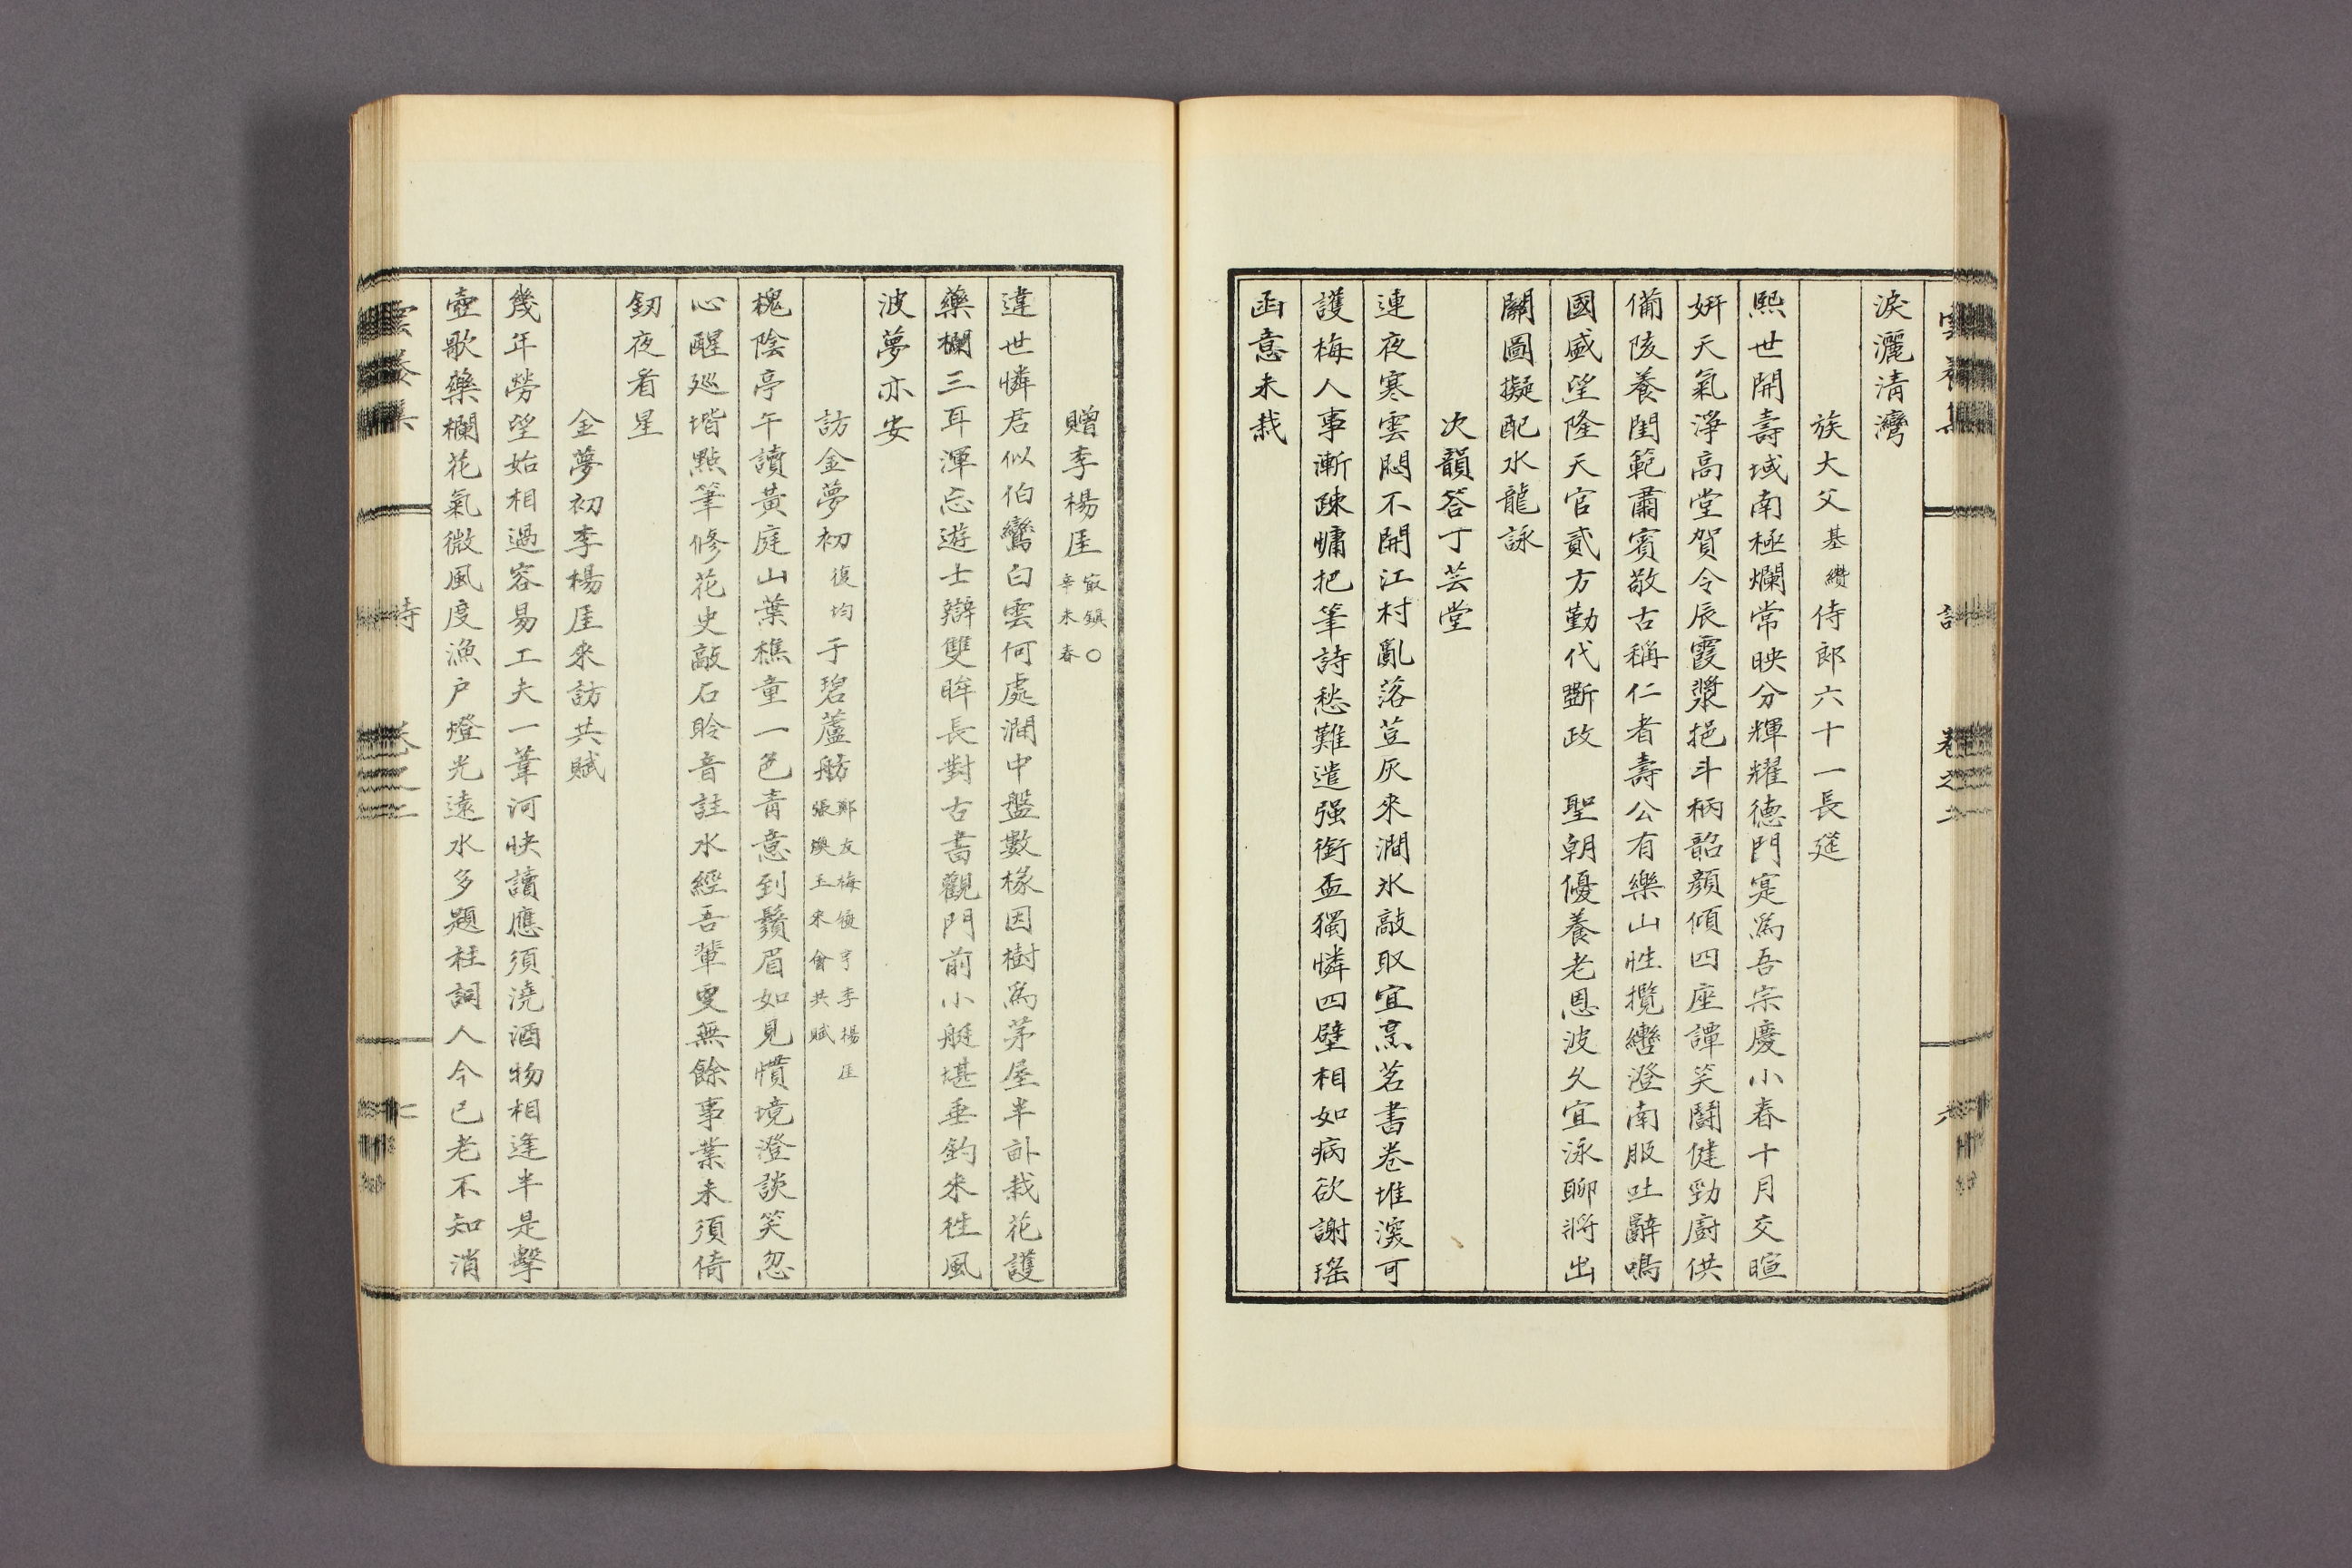 淚灑清灣
族大父基纘侍郎六十一長筵
熙世開壽域南極爛常映分輝耀德門寔爲吾宗慶小春十月交暄
姸天氣淨高堂賀令辰霞漿挹斗柄韶顔傾四座譚笑鬪健勁廚供
備陔養閨範肅賓敬古稱仁者壽公有樂山性攬轡澄南服吐辭鳴
國盛望隆天官貳方勤代斲政 聖朝優養老恩波久宜泳聊將出
關圖擬配水龍詠
次韻答丁芸堂
連夜寒雲悶不開江村亂落荳灰來澗氷敲取宜烹茗書卷堆深可
護梅人事漸疎慵把筆詩愁難遣强銜盃獨憐四壁相如病欲謝瑤
函意未裁
贈李楊厓㝡鎭○辛未春
違世憐君似伯鸞白雲何處澗中盤數椽因樹爲茅屋半畝栽花護
藥欄三耳渾忘遊士辯雙眸長對古書觀門前小艇堪垂釣來徃風
波夢亦安
訪金夢初復均于碧蘆舫鄭友梅復亨李楊厓張煥玉宋會共賦
槐陰亭午讀黃庭山葉樵童一色靑意到鬚眉如見憤境澄談笑忽
心醒廵堦點筆修花史敲石聆音註水經吾輩更無餘事業未須倚
釰夜看星
金夢初李楊厓來訪共賦
幾年勞望始相過容易工夫一葦河快讀應須澆酒物相逢半是擊
壺歌藥欄花氣微風度漁户燈光遠水多題柱詞人今已老不知消
詩